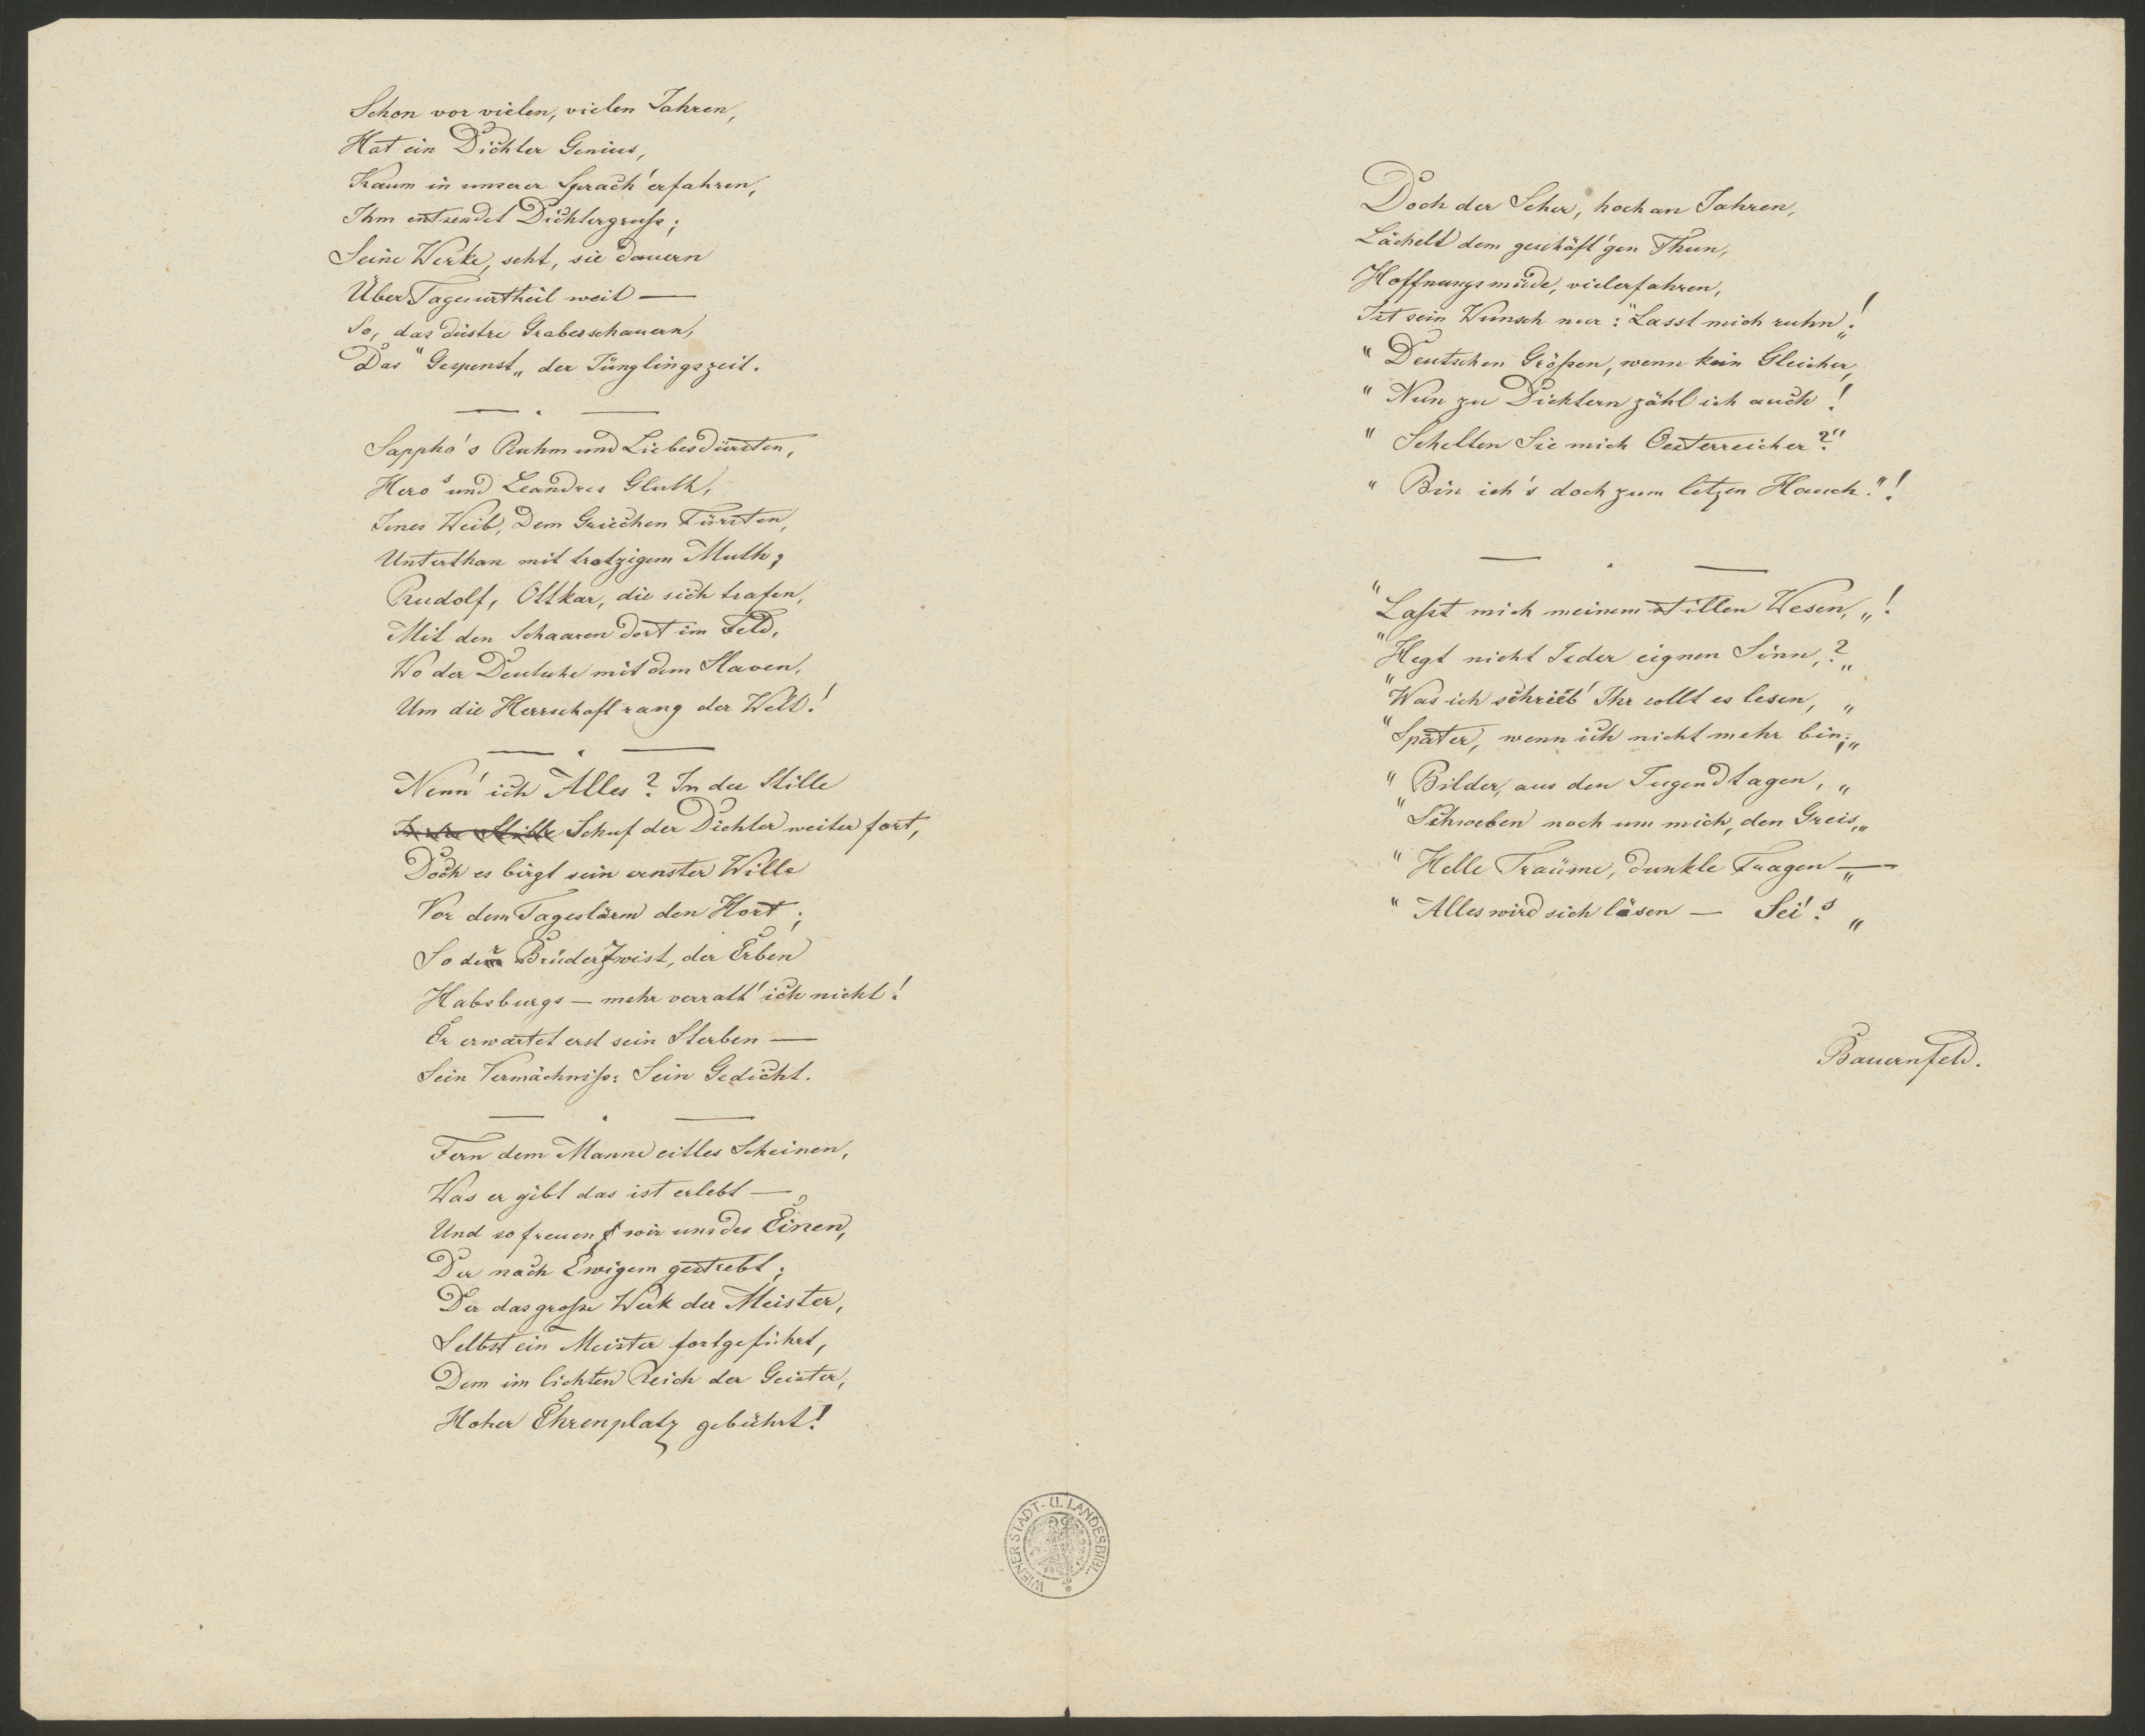 Schon vor vielen, vielen Jahren,
Hat ein Dichter Genius,
Kaum in unserer Sprach' erfahren,
Ihm entsendet Dichtergruß;
Seine Werke, seht, sie dauern
Über Tagesurtheil weit —
So, das düstre Grabesschauern,
Das "Gespenst„ der Jünglingszeit.
Sappho's Ruhm und Liebesdürsten,
Hero's und Leandres Gluth,
Jenes Weib, dem Griechen Fürsten,
Unterthan mit trotzigem Muth;
Rudolf, Ottkar, die sich trafen,
Mit den Schaaren dort im Feld,
Wo der Deutsche mit dem Slaven,
Um die Herrschaft rang der Welt!
Nenn' ich Alles? In der Stille
In der Stille Schuf der Dichter weiter fort,
Doch es birgt sein ernster Wille
Vor dem Tageslärm den Hort;
So der BrüderZwist, der Erben
Habsburgs — mehr verrath' ich nicht!
Er erwartet erst sein Sterben —
Sein Vermächniß: Sein Gedicht.
Fern dem Manne eitles Scheinen,
Was er gibt das ist erlebt —
Und so freuen wir uns des Einen,
Der nach Ewigem gestrebt;
Der das große Werk der Meister,
Selbst ein Meister fortgeführt,
Dem im lichten Reich der Geister,
Hoher Ehrenplatz gebührt!
Doch der Seher, hoch an Jahren,
Lächelt dem geschäft'gen Thun,
Hoffnungsmüde, vielerfahren,
Ist sein Wunsch nur: "Lasst mich ruhn„!
"Deutschen Größen, wenn kein Gleicher,
"Nun zu Dichtern zähl ich auch!
"Schelten Sie mich Oesterreicher?"
"Bin ich's doch zum letzen Hauch."!
"Laßt mich meinem stillen Wesen,„!
"Hegt nicht Jeder eignen Sinn,?„
"Was ich schrieb' Ihr sollt es lesen, „
"Später, wenn ich nicht mehr bin;„
"Bilder, aus den Jugendtagen, „
"Schweben noch um mich, den Greis,„
"Helle Traüme, dunkle Fragen —„
"Alles wird sich lösen — Sei's! „
Bauernfeld.
WIENER STADT- U. LANDESBIBL.